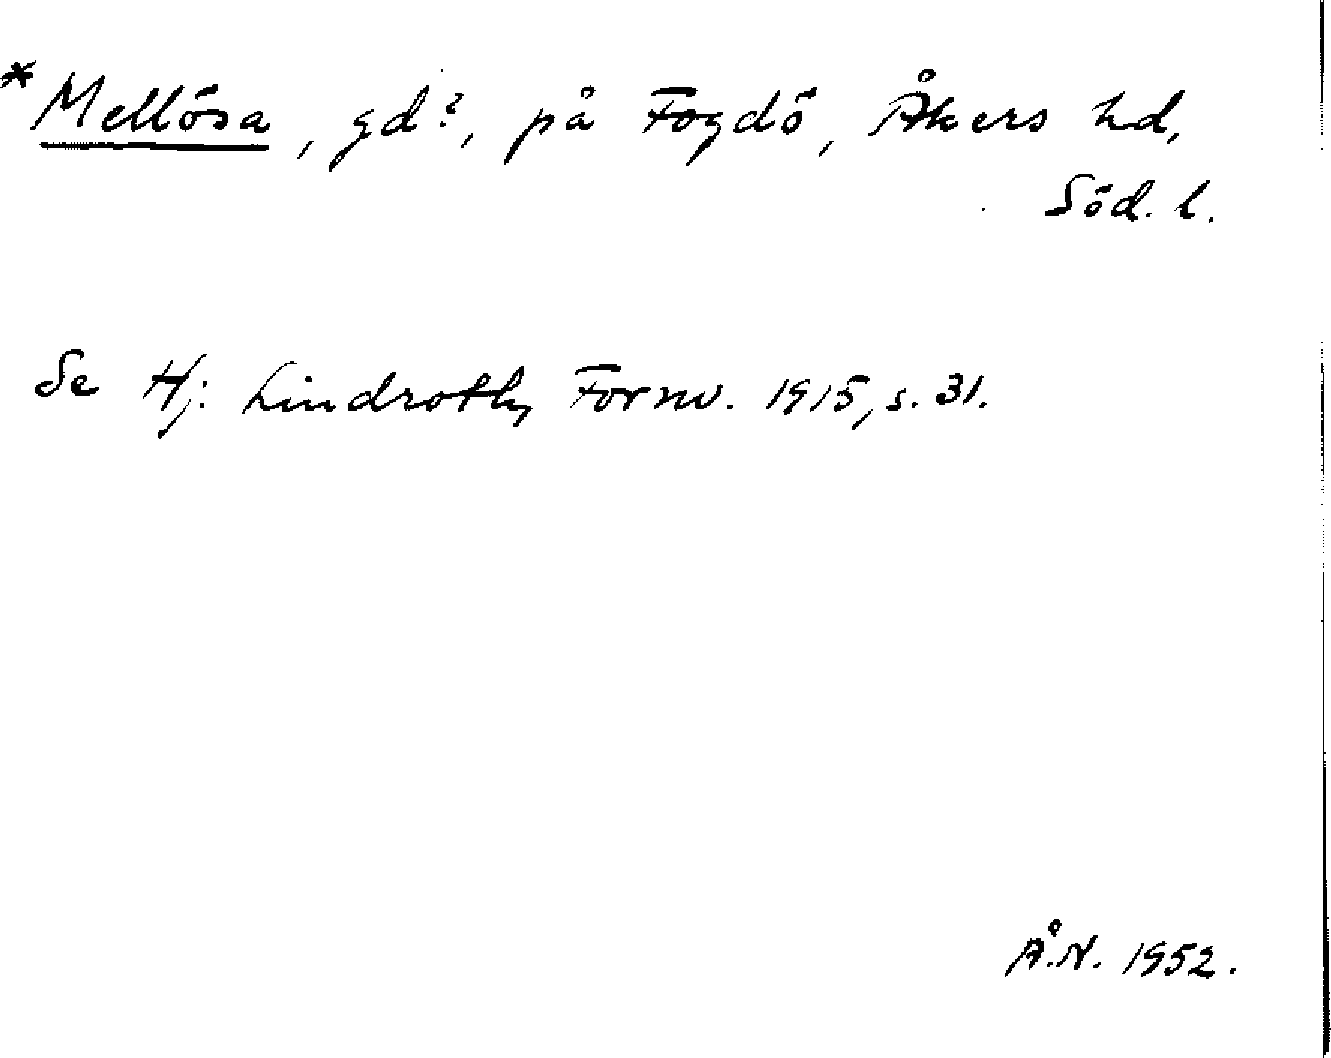 *Mellösa, gd?, på Fogdö, Åkers hd,
Söd. l.
Se Hj. Lindroth, Fornv. 1915, s. 31.
Å.N. 1952.